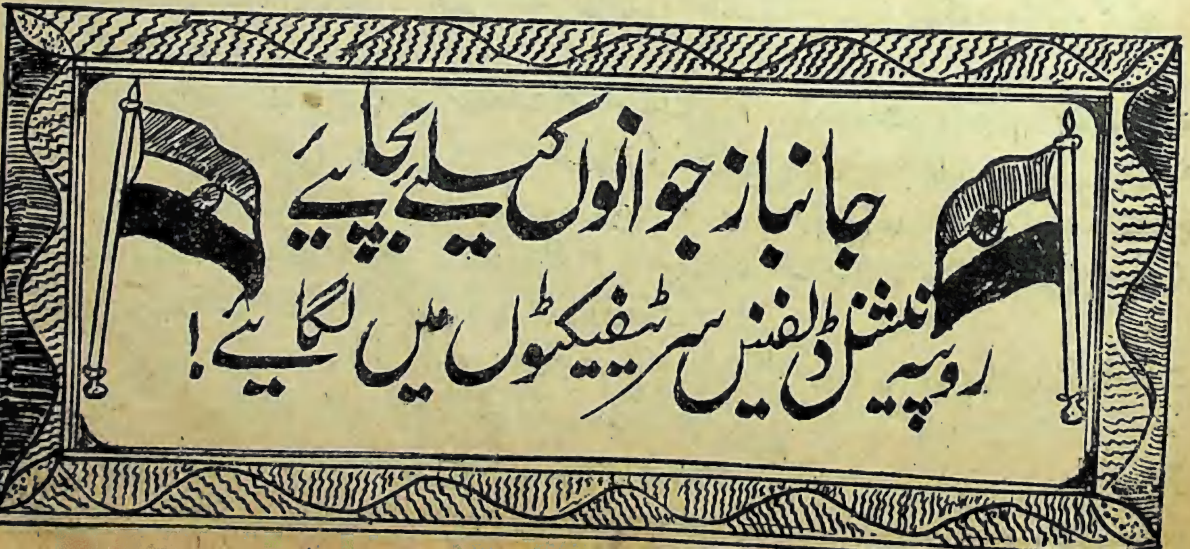 جانباز جوانوں کیلئے بچائیے
روپیہ نیشنل ڈلفنس سرٹیفیکٹوں میں لگائیے!